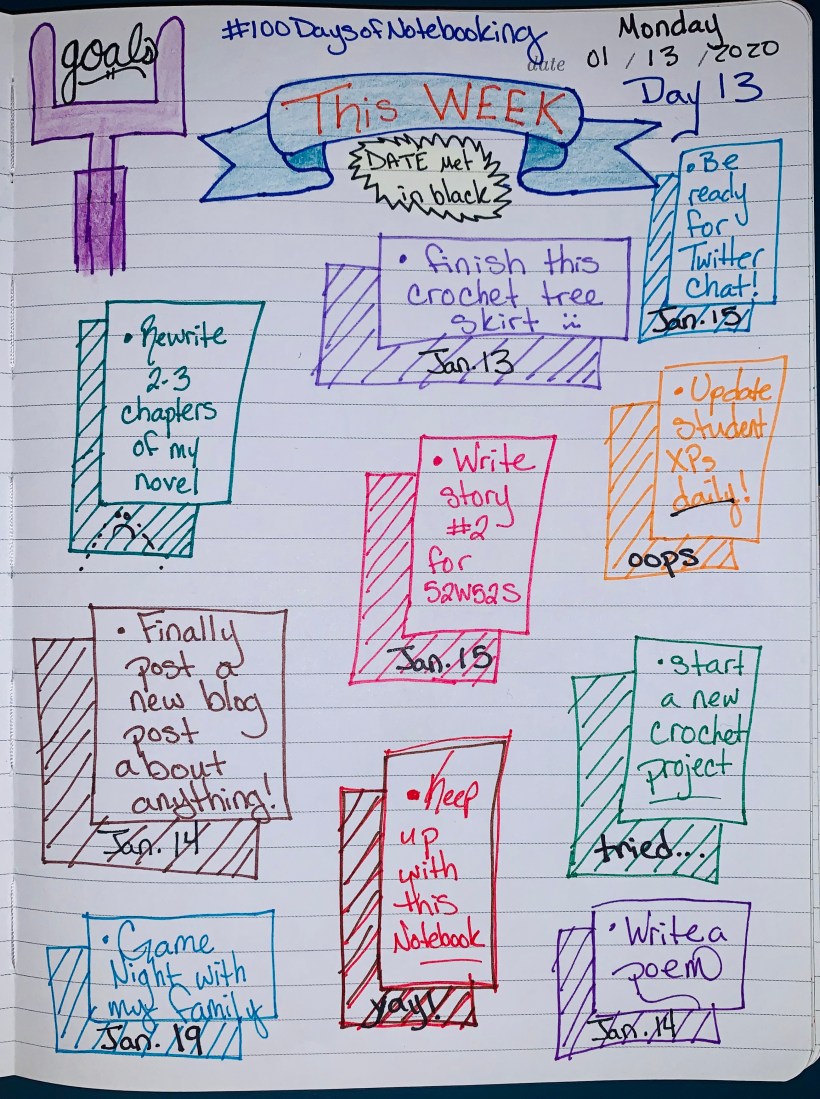 goals
#100DaysofNotebooking
Monday
date 01 / 13 / 2020
Day 13
This WEEK
DATE met
in black
• Be
ready
for
Twitter
chat!
Jan. 15
• finish this
crochet tree
skirt
Jan. 13
• Rewrite
2-3
chapters
of my
novel
• Update
student
XPs
daily!
oops
• Write
story
#2
for
52W52S
Jan. 15
• Finally
post a
new blog
post
about
anything!
Jan. 14
• start
a new
crochet
project
tried...
• Keep
up
with
this
Notebook
yay!
• Game
Night with
my family
Jan. 19
• Write a
poem
Jan. 14